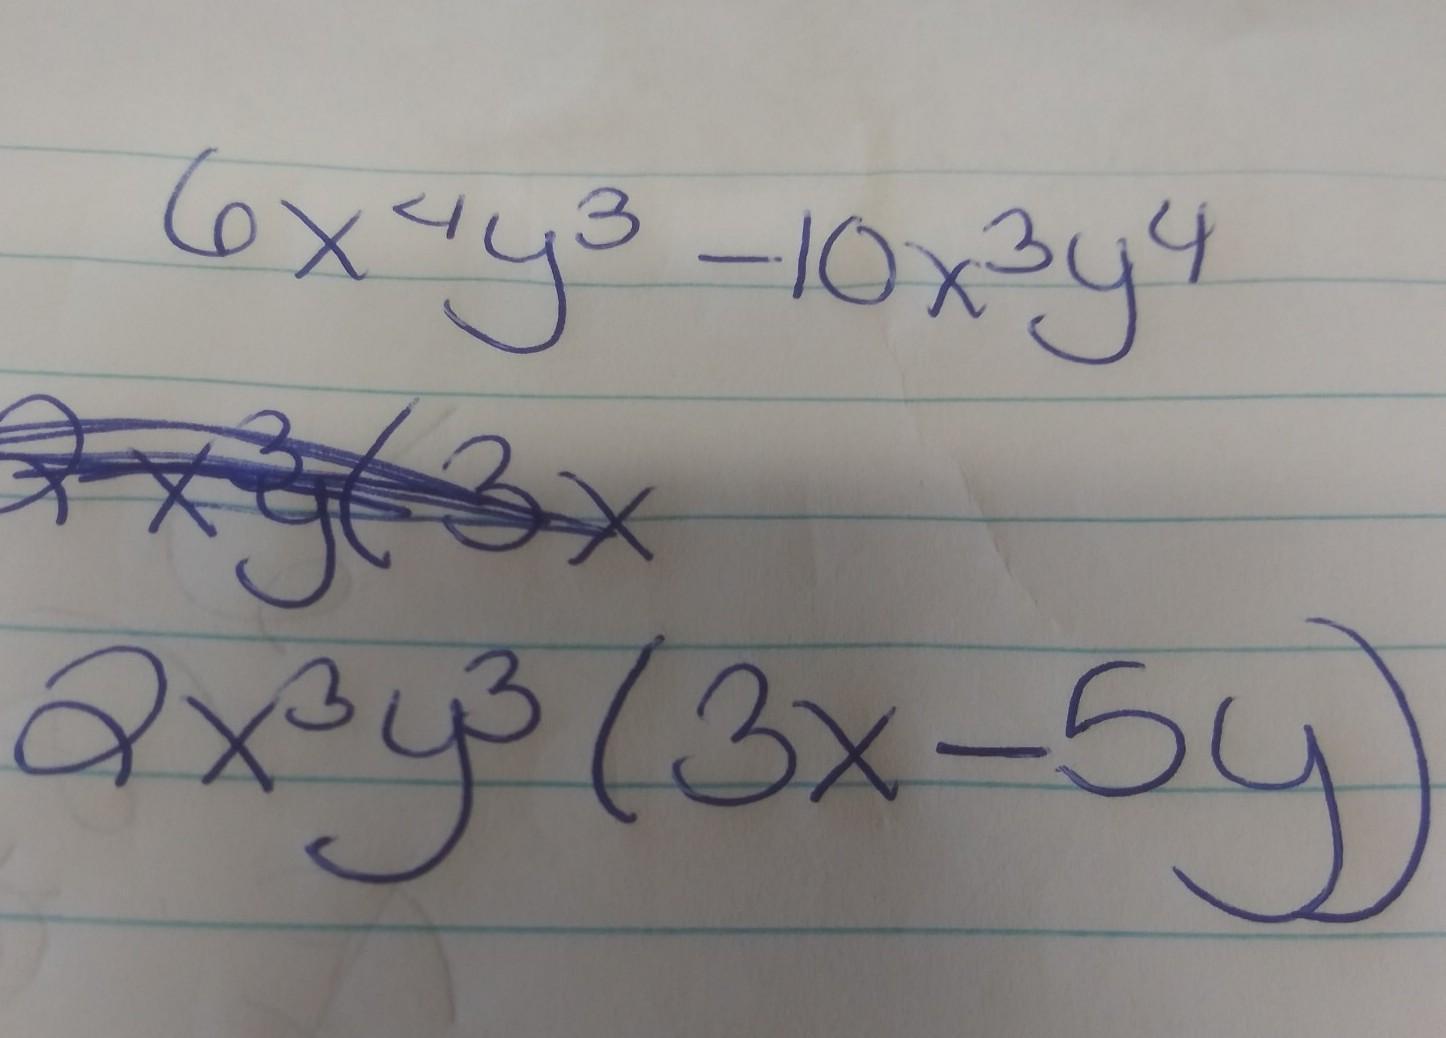 6x⁴y³ -10x³y⁴
2x³y(3x
2x³y³(3x-5y)